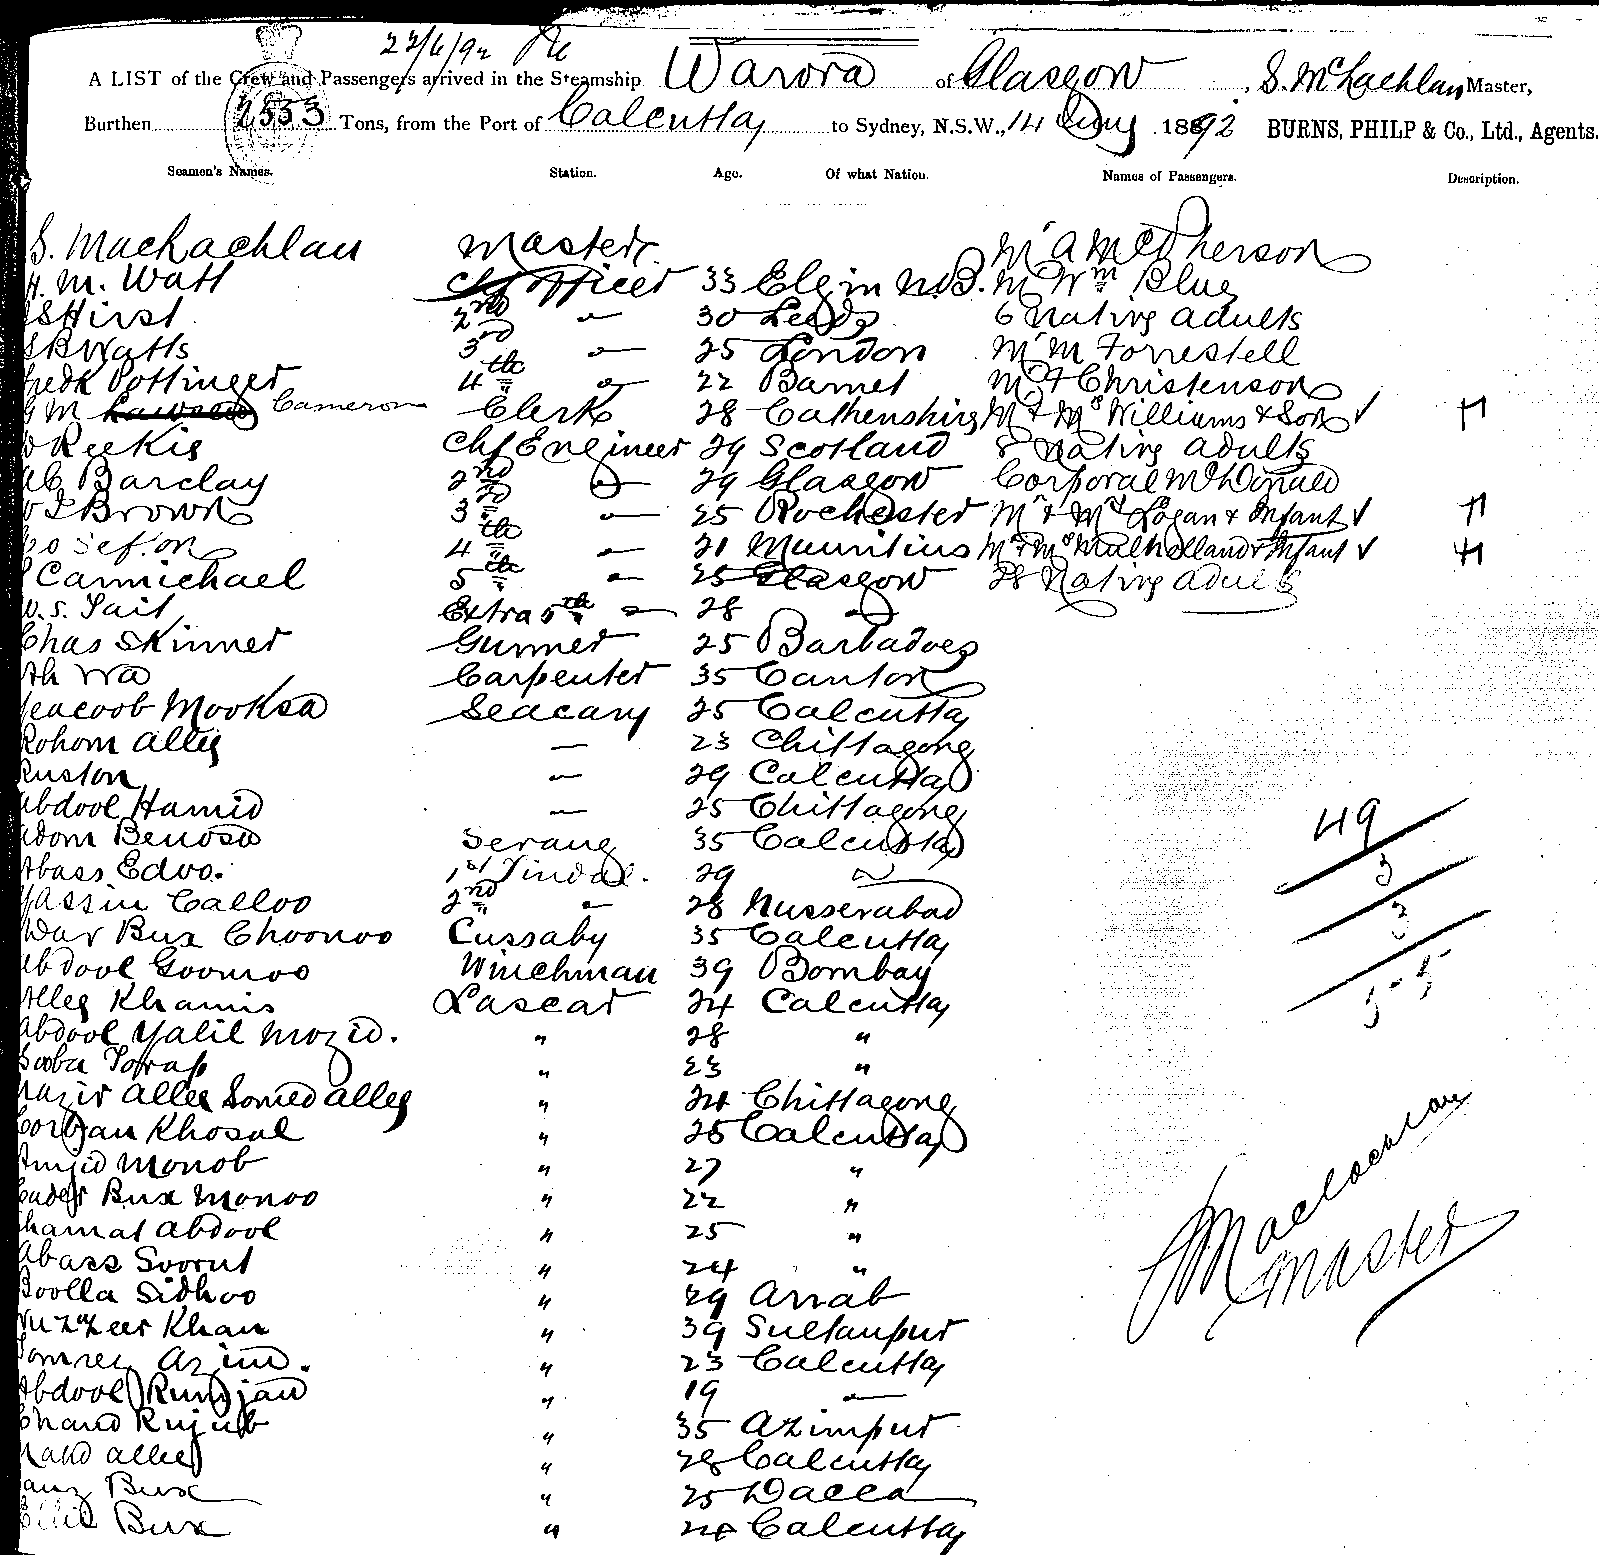 22/6/92
A LIST of the Crew and Passengers arrived in the Steamship Warora of Glasgow, S. McLachlan Master,
Burthen 2533 Tons, from the Port of Calcutta to Sydney, N.S.W., 14 1892 BURNS, PHILP & Co., Ltd., Agents.
Seamen's Names. Station. Age. Of what Nation. Names of Passengers. Description.
S. MacLachlan Master Mr A McPherson
H. M. Watt Chf Officer 33 Elgin N.B. Mr Wm Blue
Hirst 2nd " 30 Leeds 6 Native adults
Watts 3rd " 25 London Mr M Forrestell
Fredk Pottinger 4th " 22 Barnet Mr F Christenson
G M Cameron Clerk 28 Cathenshire Mr & Mrs Williams & Son ✓
Reekie Chf Engineer 29 Scotland 8 Native adults
Barclay 2nd " 29 Glasgow Corporal McDonald
Brown 3rd " 25 Rochester Mr & Mrs Logan & Infant ✓
4th " 21 Mauritius Mr & Mrs Mulholland & Infant ✓
Carmichael 5th " 25 Glasgow 28 Native adults
W. S. Tait Extra 5th " 28 "
Chas Skinner Gunner 25 Barbadoes
Ah Wa Carpenter 35 Canton
Yeacoob Mooksa Seacany 25 Calcutta
Rohom Alley " 23 Chittagong
Ruston " 29 Calcutta
Abdool Hamid " 25 Chittagong
Adom Benosa Serang 35 Calcutta
Abass Edoo. 1st Tindal. 29 "
Yassin Calloo 2nd " 28 Nusserabad
War Bux Choonoo Cussaby 35 Calcutta
Abdool Goomoo Winchman 39 Bombay
Alleg Khamis Lascar 24 Calcutta
Abdool Yalil Mozid. " 28 "
Sooba Torap " 23 "
Nazir Allee Somed Alleg " 24 Chittagong
Corban Khosal " 25 Calcutta
Amjid Monob " 27 "
Cader Bux Monoo " 22 "
Abdool " 25 "
Abass Soorut " 24 "
Boolla Sidhoo " 29 Arrab
Khan " 39 Sultanpur
Azim. " 23 Calcutta
Abdool Rumjan " 19 "
Chand Rujub " 35 Azimpur
Allee " 28 Calcutta
Bux " 25 Dacca
Bux " Calcutta
49
3
3
55
S Maclachlan
Master